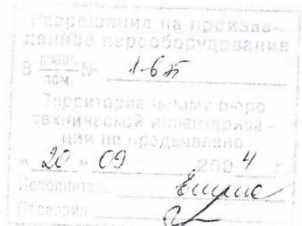 Разрешение на произве-
данное переоборудование
В № 1-6
Территориальному бюро
технической инвентариза-
ции не предъявлено
« 20 » 09 200 4
Исполнитель
Проверил